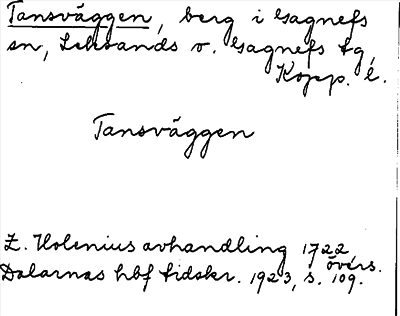 Tansväggen, berg i Gagnefs
sn, Leksands o. Gagnefs tg,
Kopp. l.
Tansväggen
Z. Holenius avhandling 1722,
övers.
Dalarnas hbf tidskr. 1923, s. 109.